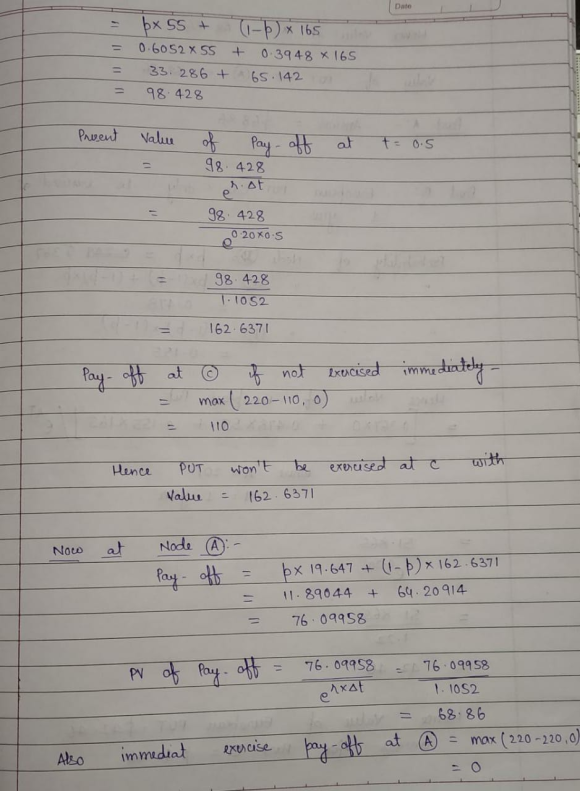 Date
= p×55 + (1-p)×165
= 0.6052×55 + 0.3948×165
= 33.286 + 65.142
= 98.428
Present Value of Pay-off at t = 0.5
= 98.428 / e^(r.Δt)
= 98.428 / e^(0.20×0.5)
= 98.428 / 1.1052
= 162.6371
Pay-off at Ⓒ if not exercised immediately -
= max(220-110, 0)
= 110
Hence PUT won't be exercised at c with
Value = 162.6371
Now at Node Ⓐ:-
Pay-off = p×19.647 + (1-p)×162.6371
= 11.89044 + 64.20914
= 76.09958
PV of Pay-off = 76.09958 / e^(r×Δt) = 76.09958 / 1.1052
= 68.86
Also immediat exercise pay-off at Ⓐ = max(220-220,0)
= 0